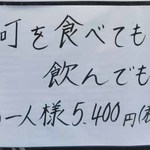 何を食べても
飲んでも
お一人様5,400円(税